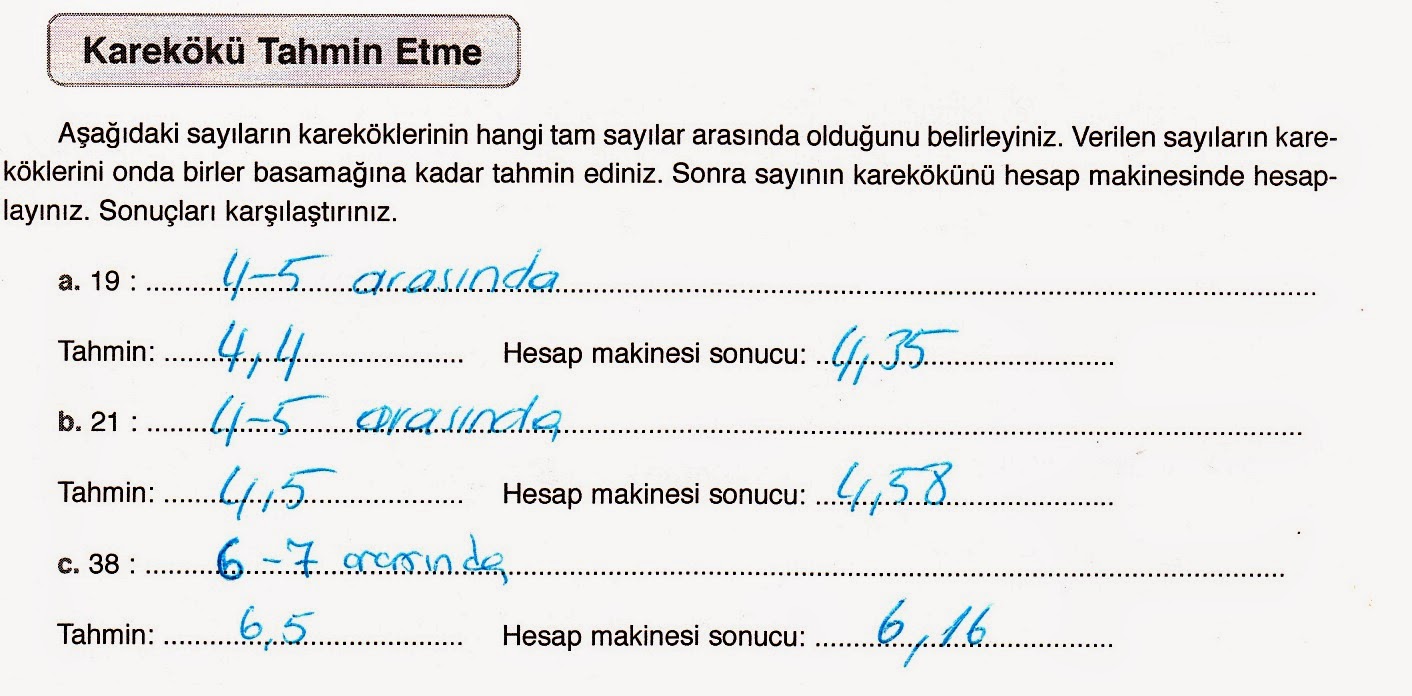 Karekökü Tahmin Etme
Aşağıdaki sayıların kareköklerinin hangi tam sayılar arasında olduğunu belirleyiniz. Verilen sayıların kare-
köklerini onda birler basamağına kadar tahmin ediniz. Sonra sayının karekökünü hesap makinesinde hesap-
layınız. Sonuçları karşılaştırınız.
a. 19 : 4-5 arasında
Tahmin: 4,4 Hesap makinesi sonucu: 4,35
b. 21 : 4-5 arasında
Tahmin: 4,5 Hesap makinesi sonucu: 4,58
c. 38 : 6-7 arasında
Tahmin: 6,5 Hesap makinesi sonucu: 6,16